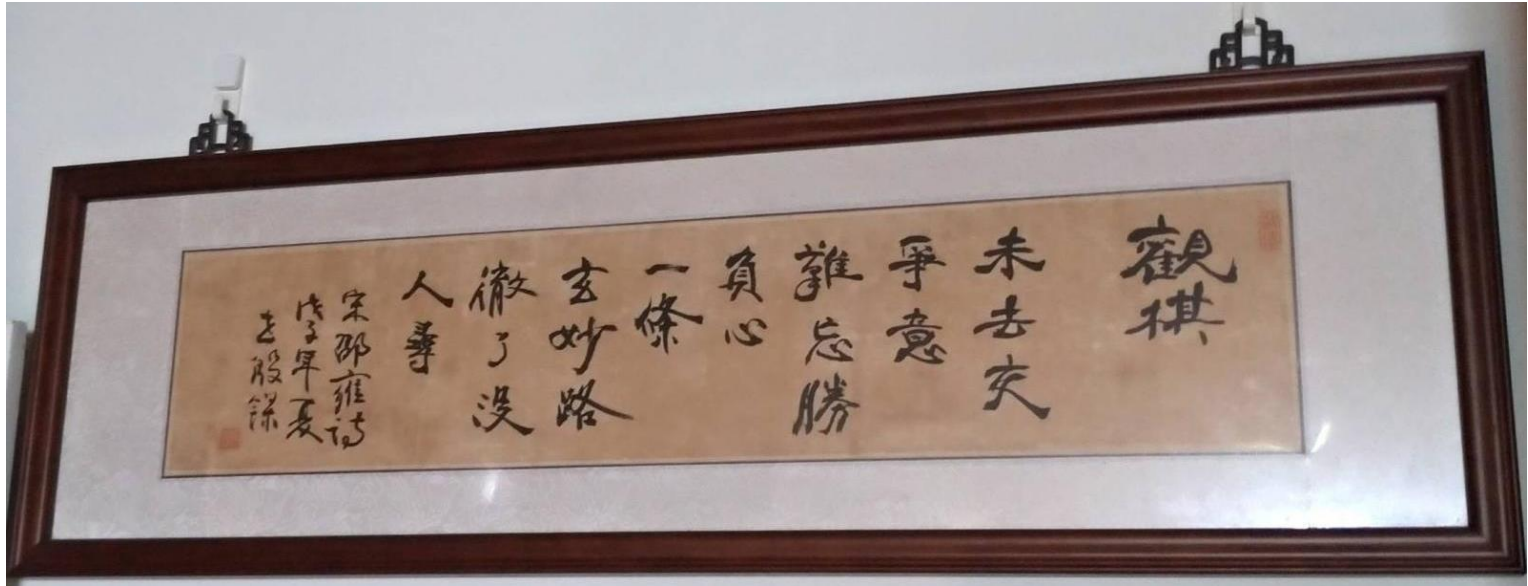 觀棋
未去交
爭意
難忘勝
負心
一條
玄妙路
徹了沒
人尋
宋邵雍詩
戊子年夏
殷